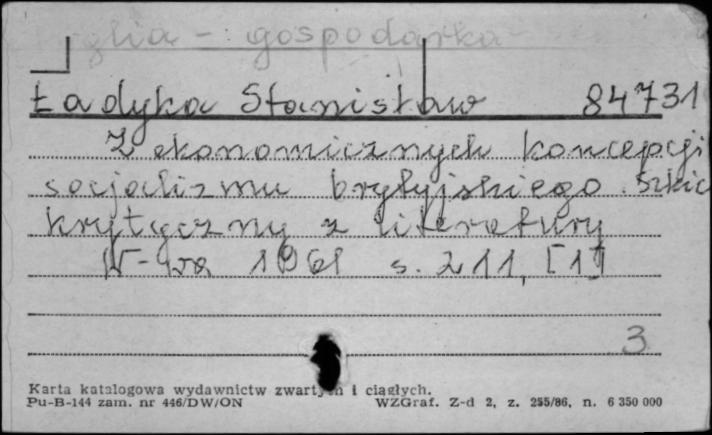 glia - gospodarka
Ładyka Stanisław 84731
Z ekonomicznych koncepcji
socjalizmu brytyjskiego. Szkic
krytyczny z literatury
W-wa 1961 s. 211, [1]
3
Karta katalogowa wydawnictw zwartych i ciągłych.
Pu-B-144 zam. nr 446/DW/ON WZGraf. Z-d 2, z. 255/86, n. 6 350 000